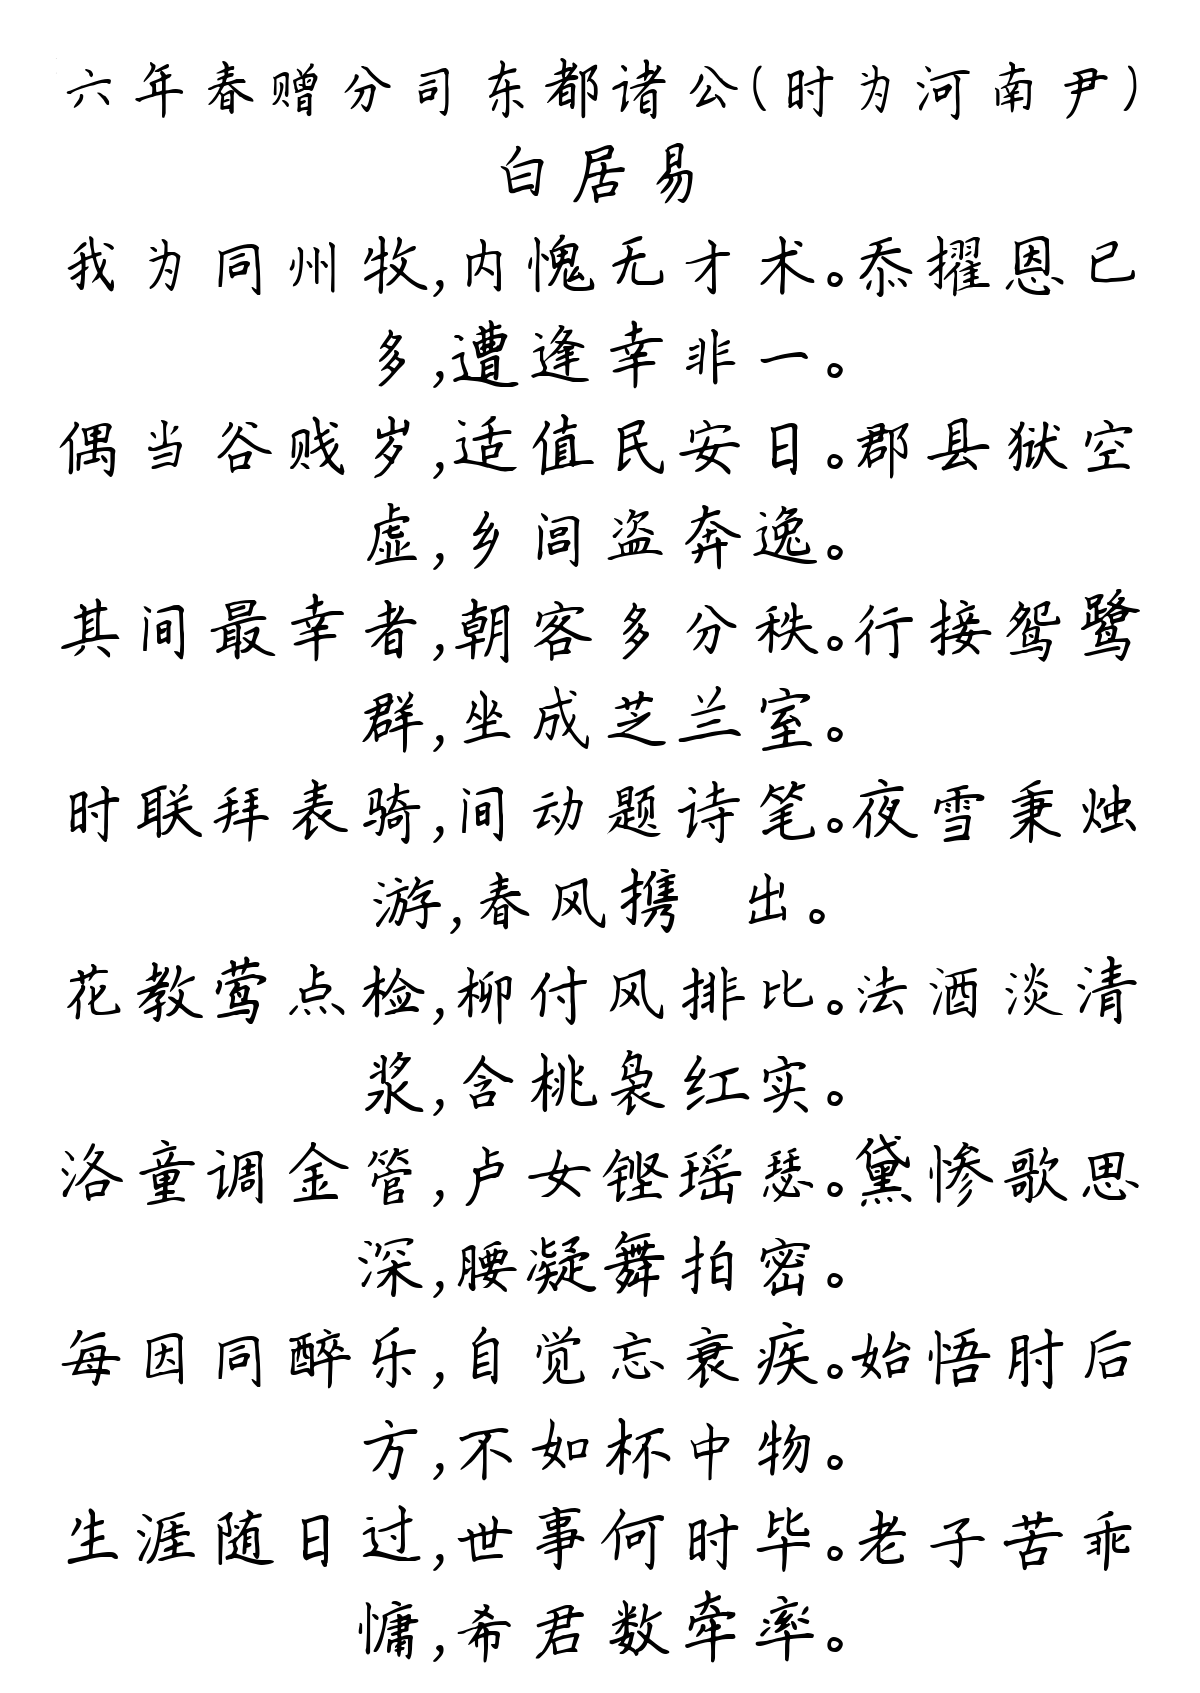 六年春赠分司东都诸公(时为河南尹)
白居易
我为同州牧,内愧无才术。忝擢恩已
多,遭逢幸非一。
偶当谷贱岁,适值民安日。郡县狱空
虚,乡闾盗奔逸。
其间最幸者,朝客多分秩。行接鸳鹭
群,坐成芝兰室。
时联拜表骑,间动题诗笔。夜雪秉烛
游,春风携 出。
花教莺点检,柳付风排比。法酒淡清
浆,含桃袅红实。
洛童调金管,卢女铿瑶瑟。黛惨歌思
深,腰凝舞拍密。
每因同醉乐,自觉忘衰疾。始悟肘后
方,不如杯中物。
生涯随日过,世事何时毕。老子苦乖
慵,希君数牵率。